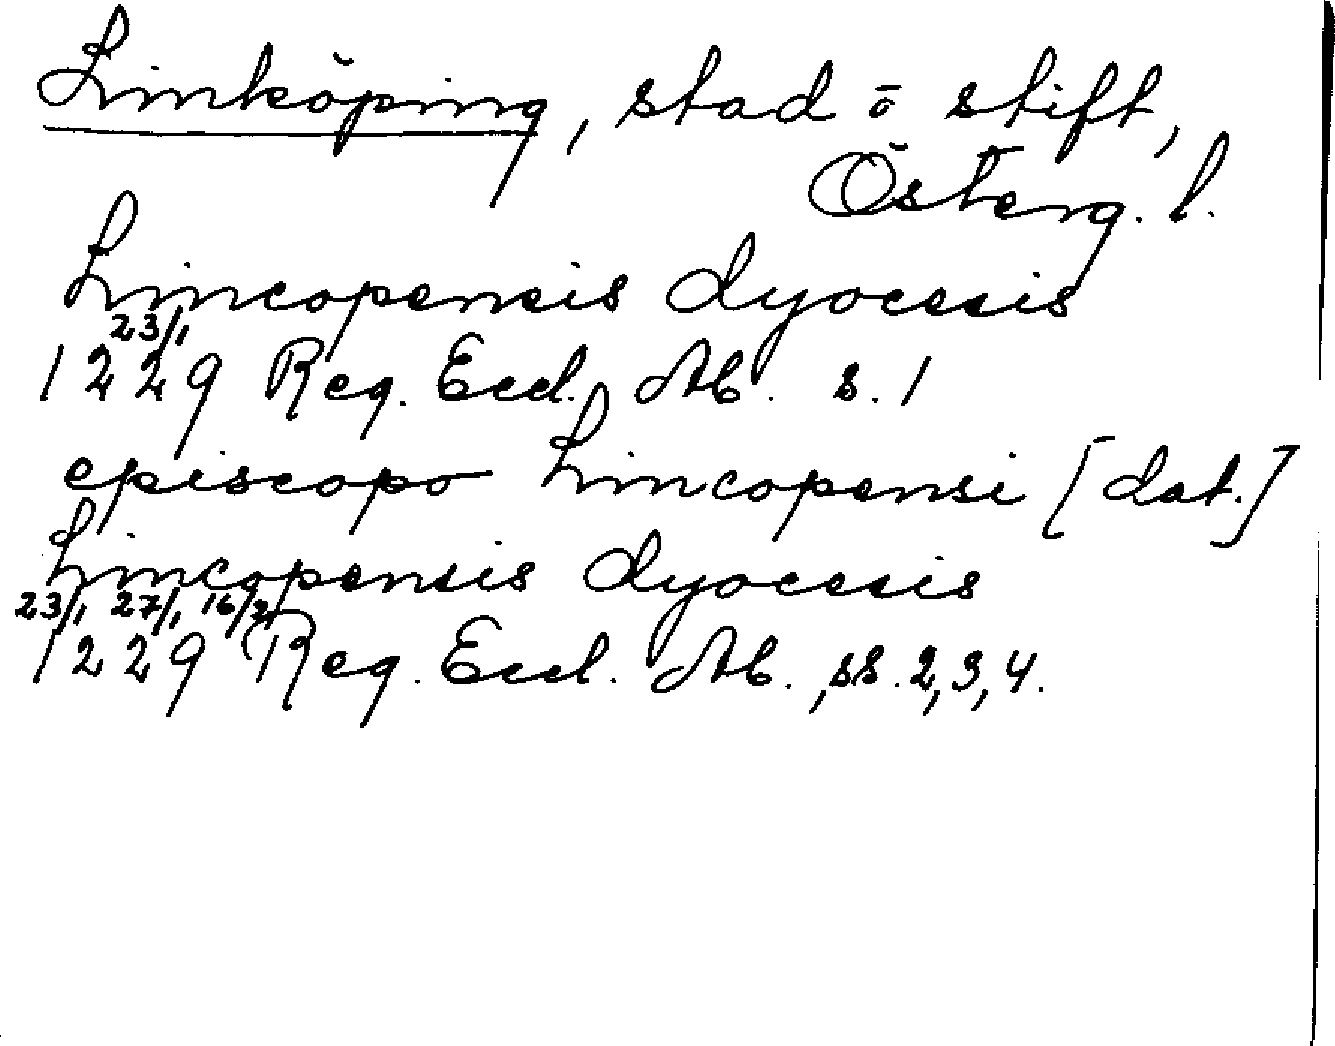 Linköping, stad o stift,
Österg. l.
Lincopensis dyocesis
23/1
1229 Reg. Eccl. Ab. s. 1
episcopo Lincopensi [dat.]
Lincopensis dyocesis
23/1 27/1 16/2
1229 Reg. Eccl. Ab., ss. 2, 3, 4.